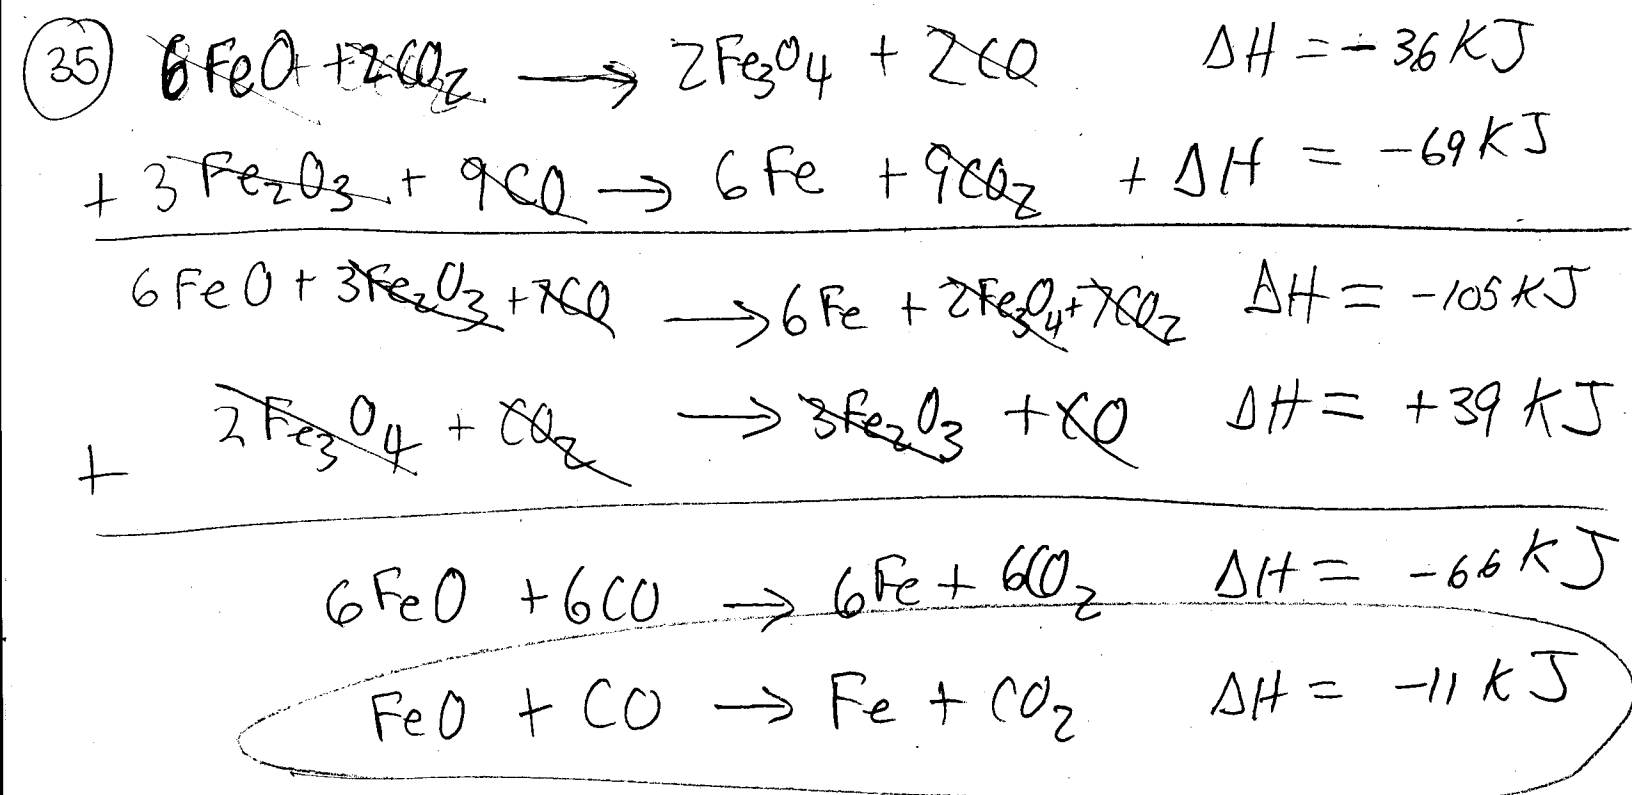 35 6FeO + 2CO₂ → 2Fe₃O₄ + 2CO ΔH = -36KJ
+ 3Fe₂O₃ + 9CO → 6Fe + 9CO₂ + ΔH = -69KJ
6FeO + 3Fe₂O₃ + 7CO → 6Fe + 2Fe₃O₄ + 7CO₂ ΔH = -105KJ
+ 2Fe₃O₄ + CO₂ → 3Fe₂O₃ + CO ΔH = +39KJ
6FeO + 6CO → 6Fe + 6CO₂ ΔH = -66KJ
FeO + CO → Fe + CO₂ ΔH = -11KJ